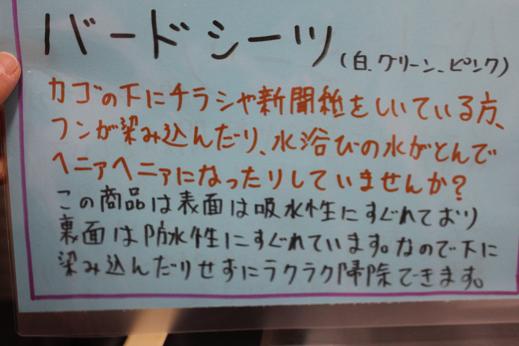 バードシーツ
(白、グリーン、ピンク)
カゴの下にチラシや新聞紙をしいている方、
フンが染み込んだり、水浴びの水がとんで
ヘニァヘニァになったりしていませんか?
この商品は表面は吸水性にすぐれており
裏面は防水性にすぐれています。なので下に
染み込んだりせずにラクラク掃除できます。